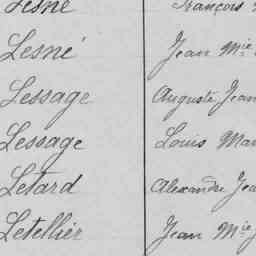 Lesné François
Lesné Jean Mie
Lessage Auguste Jean
Lessage Louis Mar
Letard Alexandre Jea
Letellier Jean Mie J